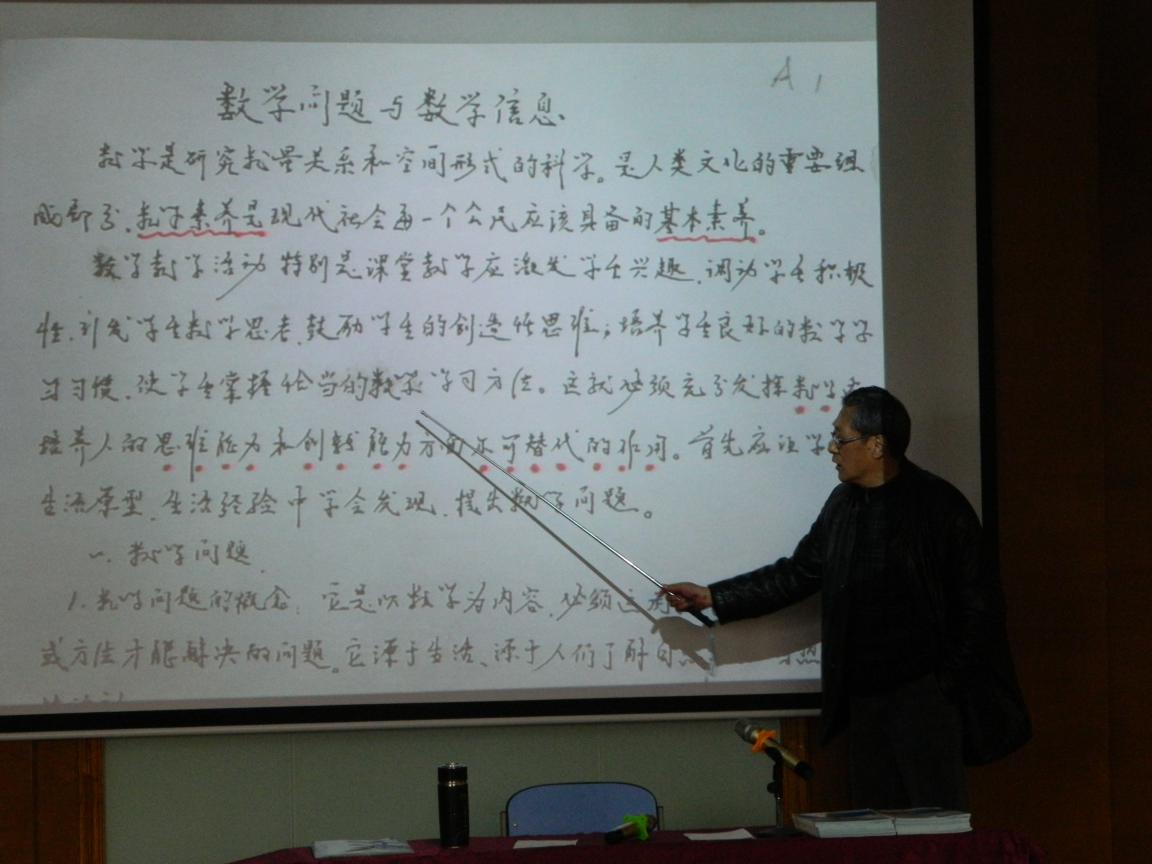 A 1
数学问题与数学信息
数学是研究数量关系和空间形式的科学。是人类文化的重要组
成部分.数学素养是现代社会每一个公民应该具备的基本素养。
数学教学活动特别是课堂教学应激发学生兴趣.调动学生积极
性.引发学生数学思考.鼓励学生的创造性思维；培养学生良好的数学学
习习惯.使学生掌握恰当的数学学习方法。这就必须充分发挥数学在
培养人的思维能力和创新能力方面不可替代的作用。首先应让学
生活原型.生活经验中学会发现.提出数学问题。
一.数学问题.
1.数学问题的概念：它是以数学为内容.必须运用
或方法才能解决的问题。它源于生活、源于人们了解自然